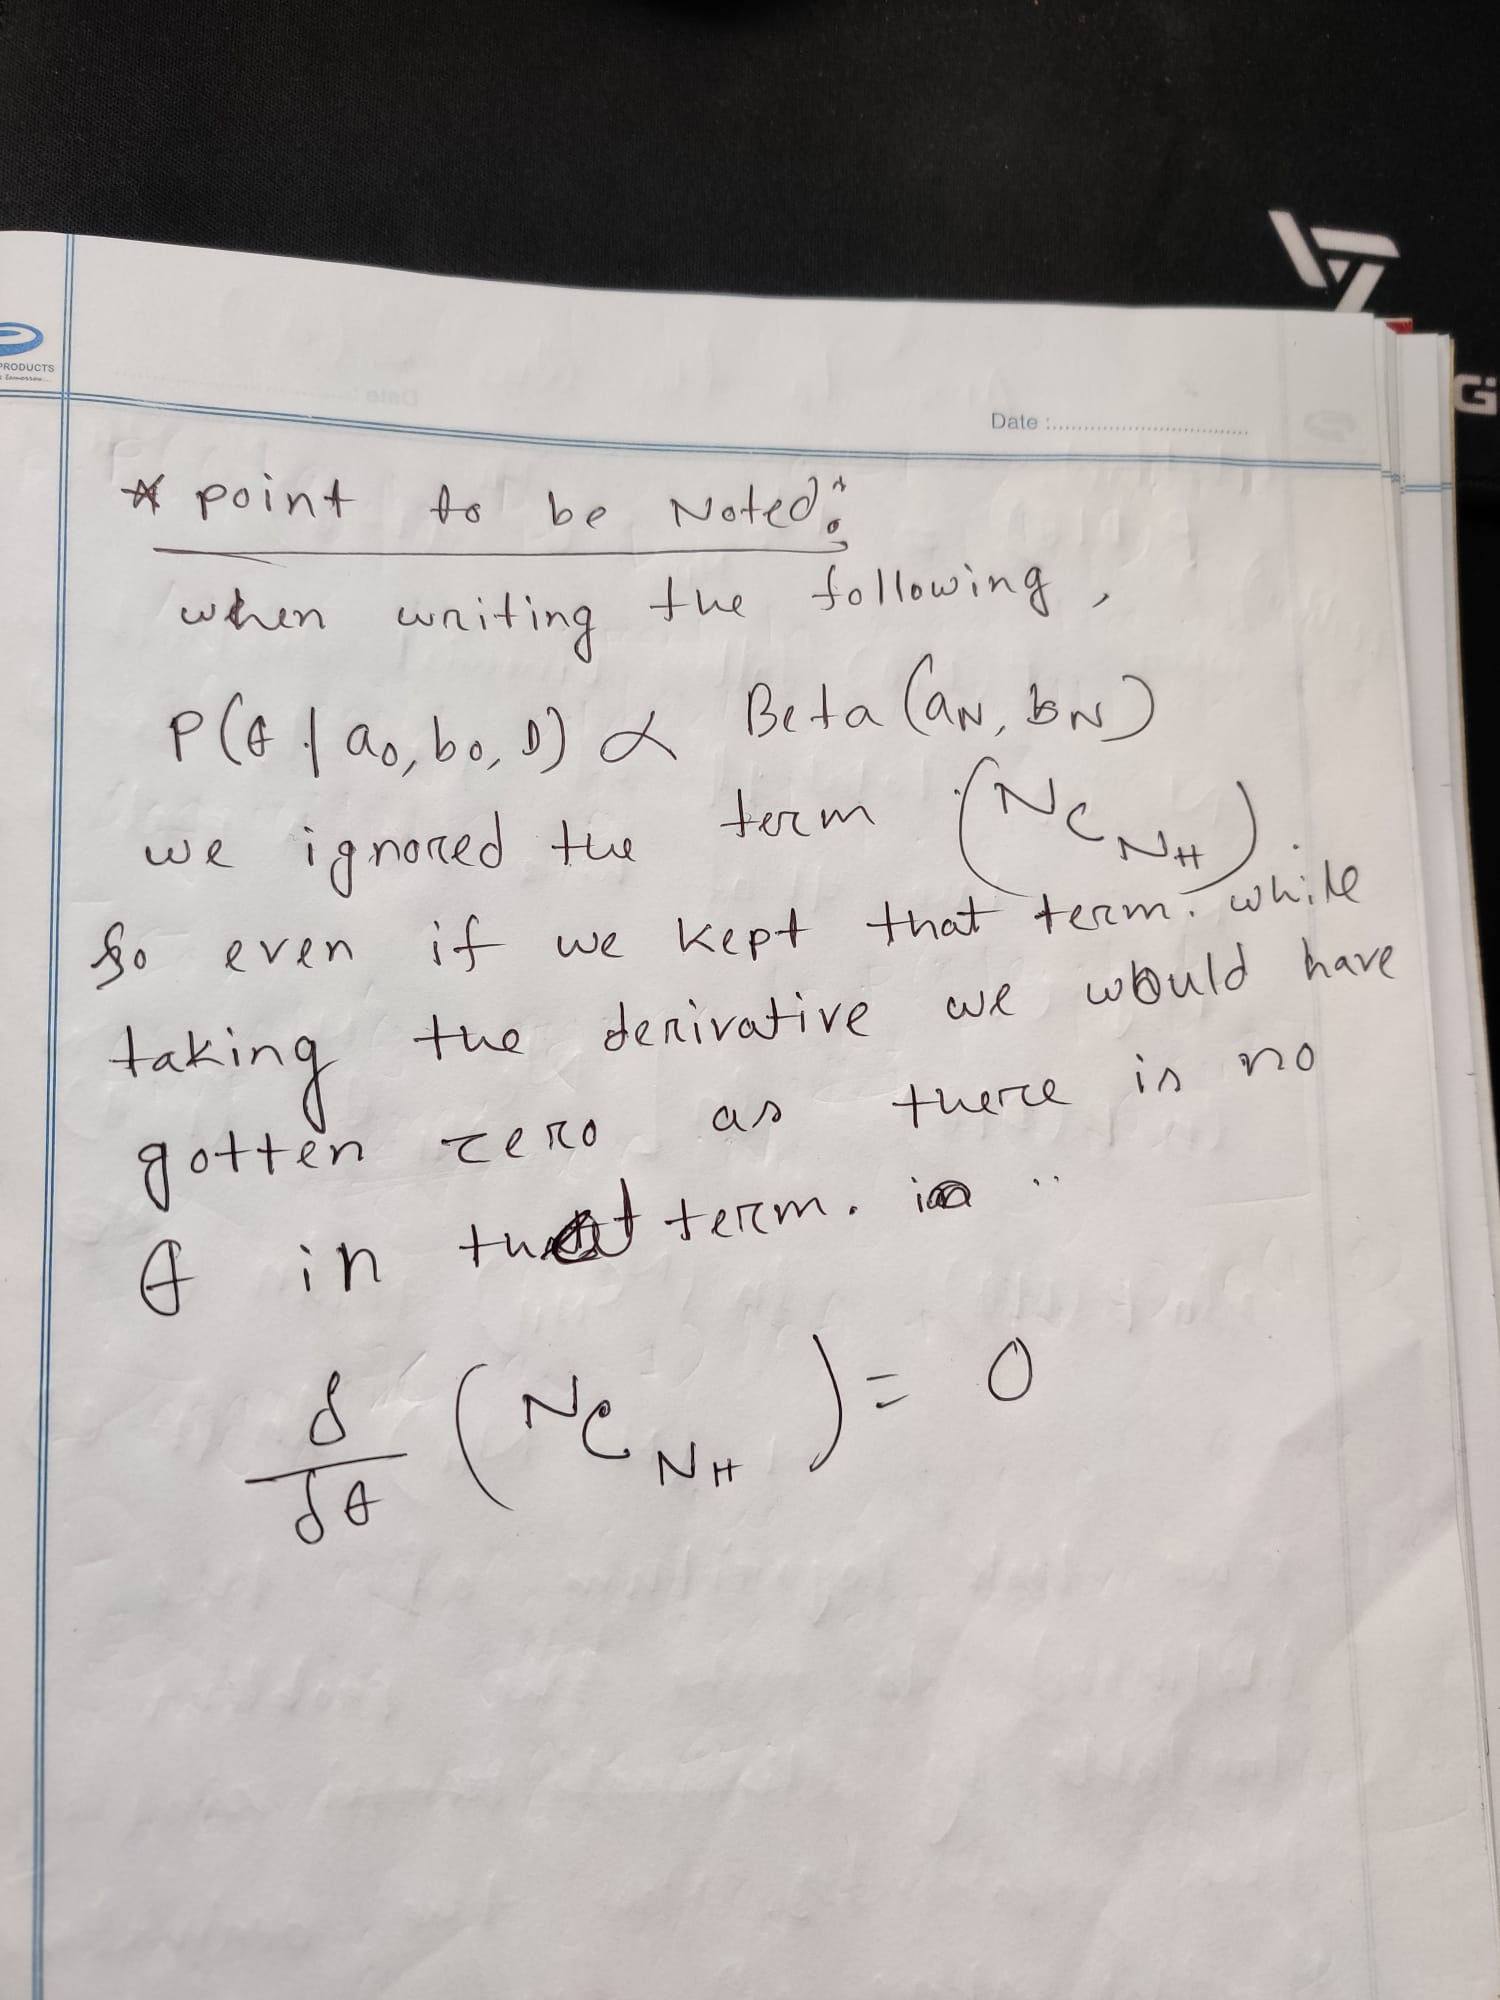 PRODUCTS
Date :
* point to be Noted:
when writing the following,
P(θ | a₀, b₀, D) ∝ Beta (aN, bN)
we ignored the term (ᴺC_NH).
So even if we kept that term. while
taking the derivative we would have
gotten zero as there is no
θ in that term. ∵
δ/δθ (ᴺC_NH) = 0